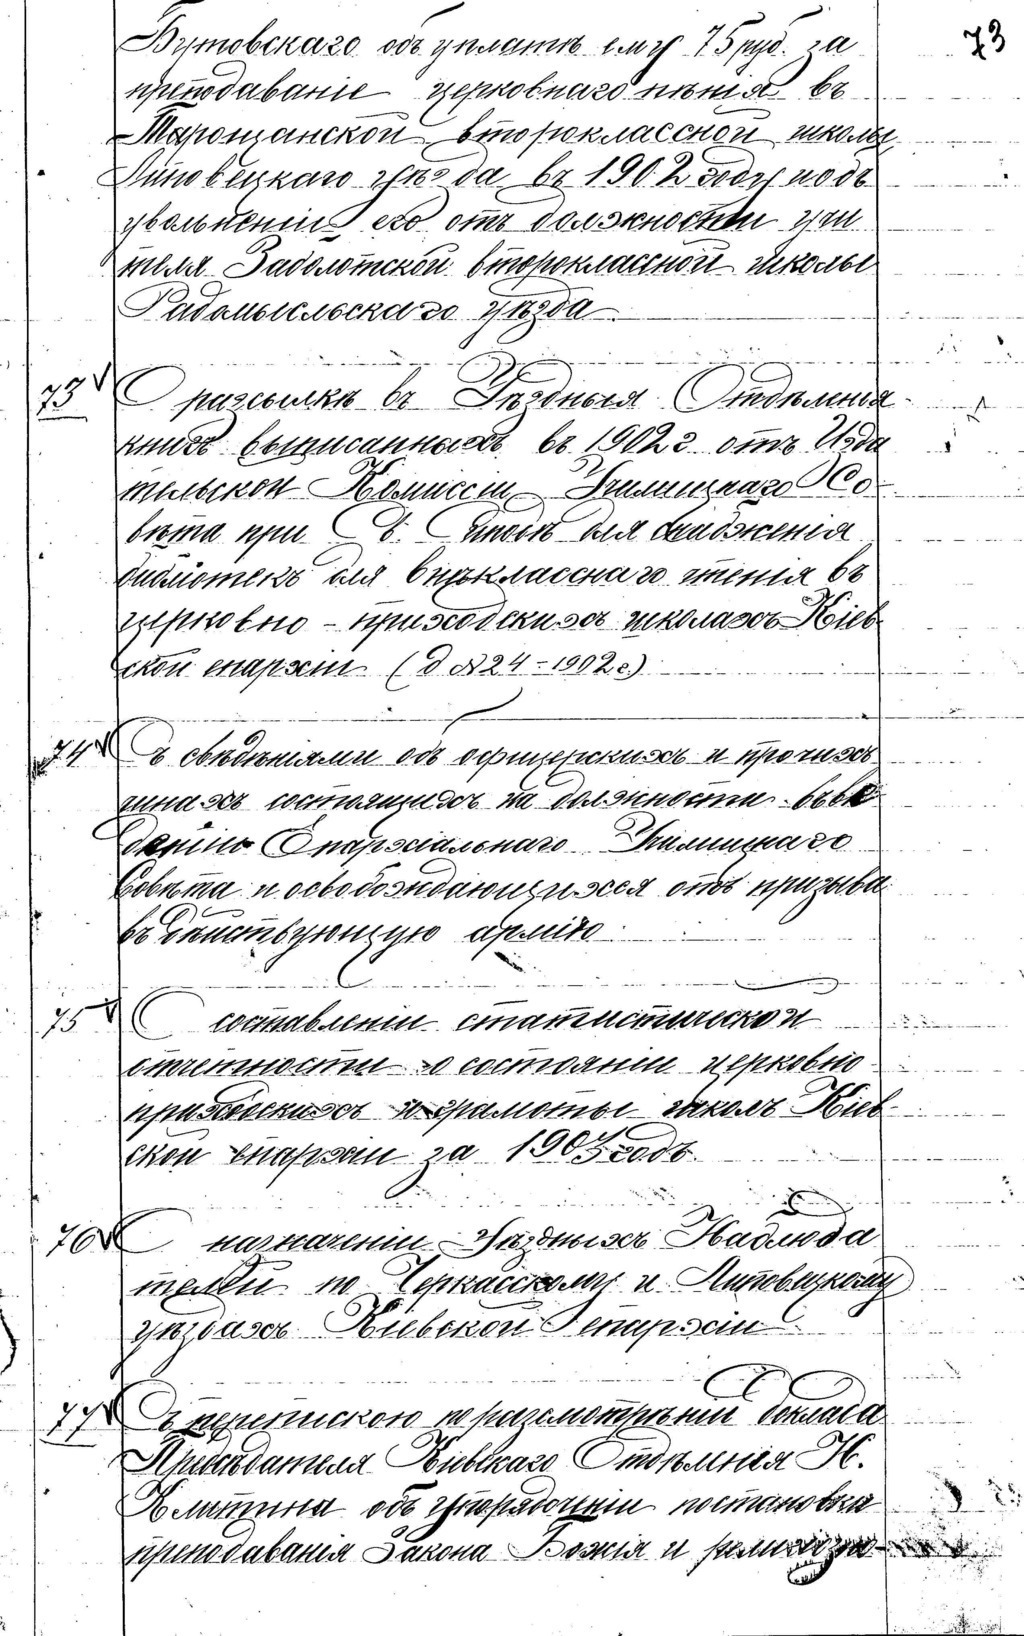 73
Бутовскаго объ уплатѣ ему 75 руб. за
преподаваніе церковнаго пѣнія въ
Жарощанской второклассной школы
Липовецкаго уѣзда въ 1902 году и объ
увольненіи его отъ должности учи
теля Заболотской второклассной школы
Радомысльскаго уѣзда
73 О разсылкѣ въ Уѣздныя Отдѣленія
книгъ выписанныхъ въ 1902 г. отъ Изда
тельской Комиссіи Училищнаго Со-
вѣта при Св. Синодѣ для снабженія
библіотекъ для внѣкласснаго чтенія въ
церковно-приходскихъ школахъ Кіев
ской епархіи (д №24-1902 г.)
74 Съ свѣдѣніями объ офицерскихъ и прочихъ
чинахъ состоящихъ на должности въ вѣ
дѣніи Епархіальнаго Училищнаго
Совѣта и освобождающихся отъ призыва
въ дѣйствующую армію
75 О составленіи статистической
отчетности о состояніи церковно
приходскихъ и грамоты школъ Кіев-
ской епархіи за 1903 годъ.
76 О назначеніи Уѣздныхъ Наблюда
телей по Черкасскому и Липовецкому
уѣздахъ Кіевской епархіи
77 Съ перепискою по разсмотрѣніи доклада
Предсѣдателя Кіевскаго Отдѣленія Н.
Клитина объ упорядоченіи постановки
преподаванія Закона Божія и религіозно-